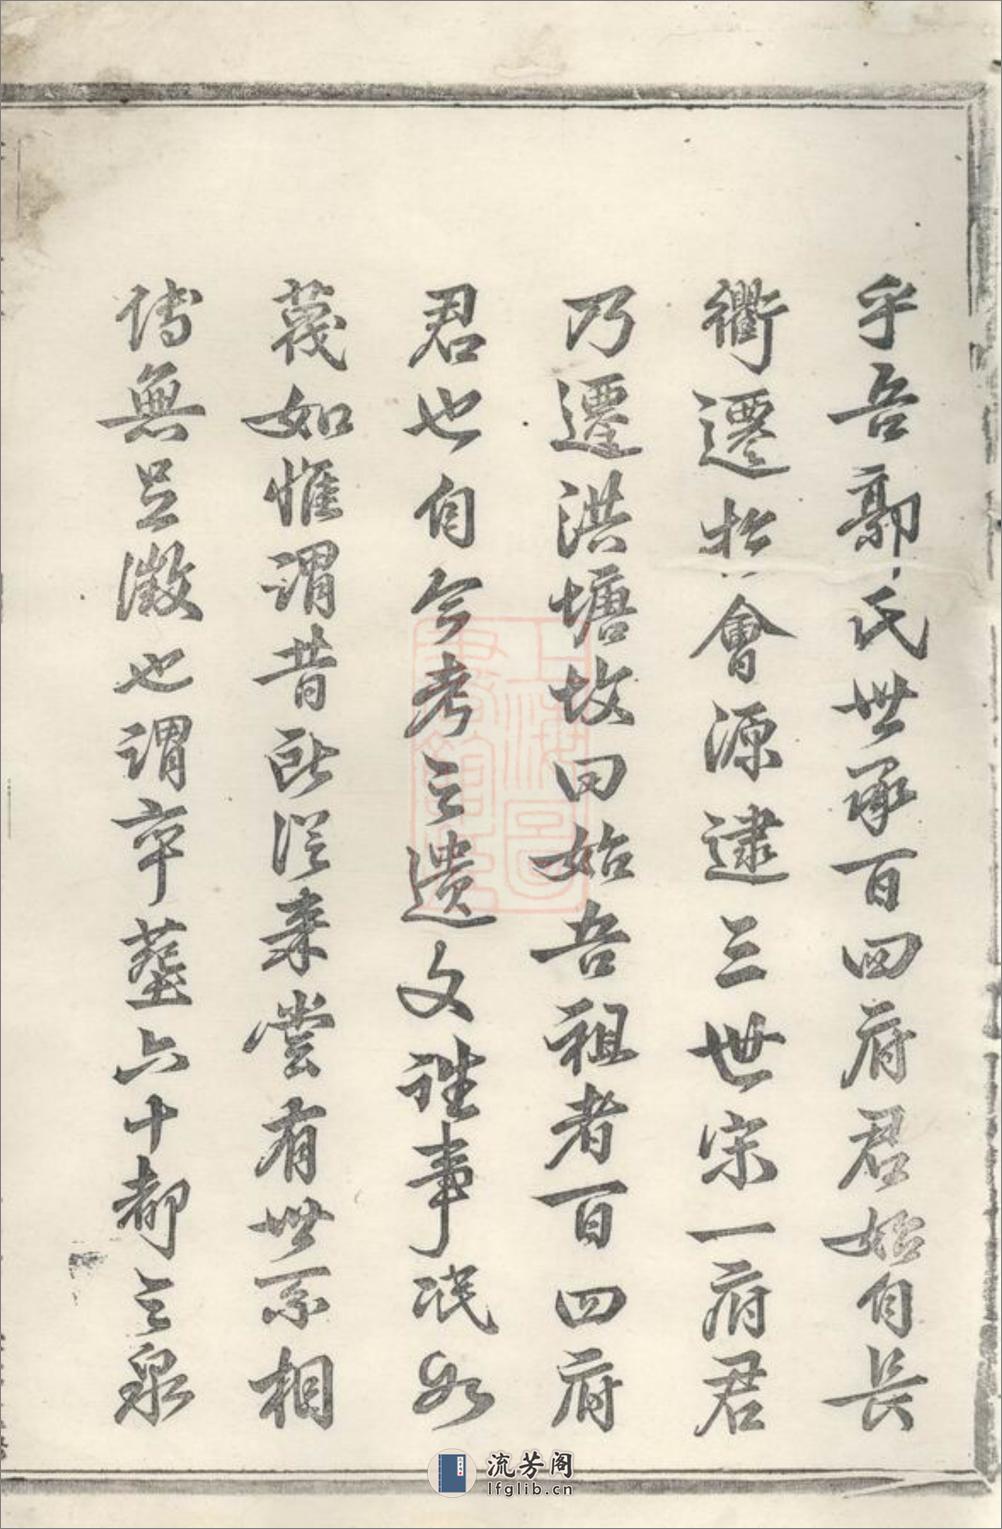 乎吾郭氏世承百四府君始自長
衢遷於會源逮三世宋一府君
乃遷洪塘故曰始吾祖者百四府
君也自今考之遺文往事泯如
蔑如惟謂昔所從来嘗有世系相
傳無足徵也謂卒塟六十都之泉
流芳阁
lfglib.cn